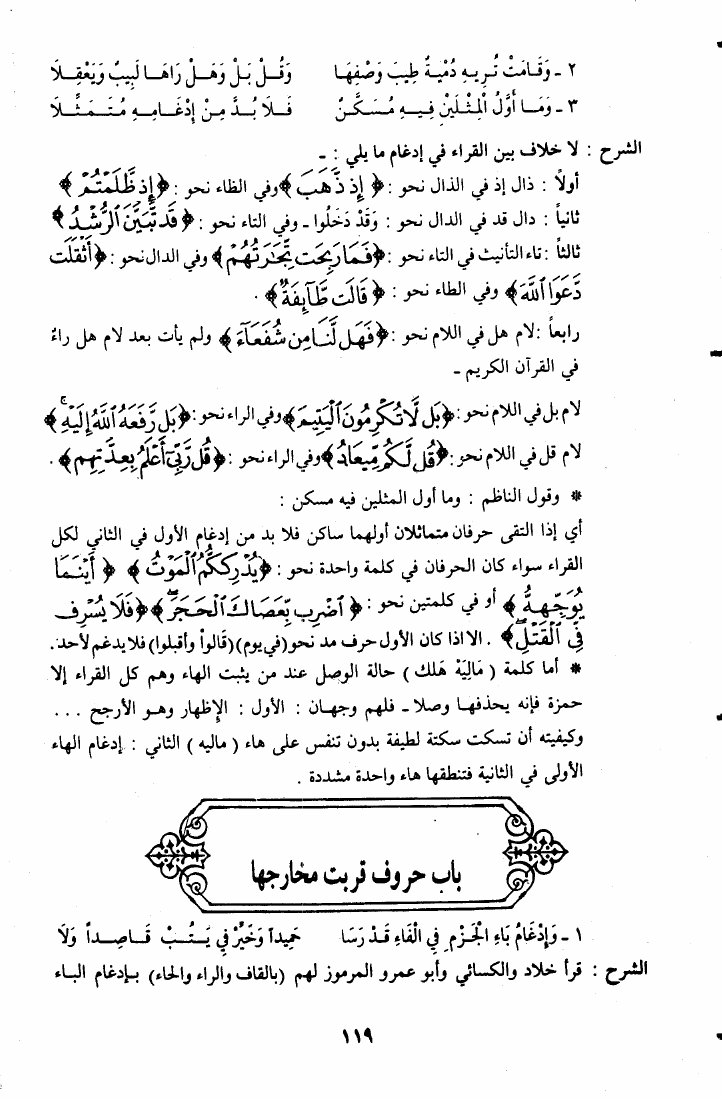 ٢ - وَقَامَتْ تُرِيهِ دُمْيَةٌ طِيبَ وَصْفِهَا وَقُلْ بَلْ وَهَلْ رَاهَا لَبِيبٌ وَيَعْقِلَا
٣ - وَمَا أَوَّلُ الْمِثْلَيْنِ فِيهِ مُسَكَّنٌ فَلَا بُدَّ مِنْ إِدْغَامِهِ مُتَمَثِّلَا
الشرح : لا خلاف بين القراء في إدغام ما يلي : -
أولاً : ذال إذ في الذال نحو : ﴿ إِذ ذَّهَبَ ﴾ وفي الظاء نحو : ﴿ إِذ ظَّلَمْتُمْ ﴾
ثانياً : دال قد في الدال نحو : وَقَدْ دَخَلُوا - وفي التاء نحو : ﴿ قَد تَّبَيَّنَ الرُّشْدُ ﴾
ثالثاً : تاء التأنيث في التاء نحو : ﴿فَمَا رَبِحَت تِّجَارَتُهُمْ﴾ وفي الدال نحو : ﴿أَثْقَلَت
دَّعَوَا اللَّهَ﴾ وفي الطاء نحو : ﴿ قَالَت طَّائِفَةٌ ﴾ .
رابعاً : لام هل في اللام نحو : ﴿فَهَل لَّنَا مِن شُفَعَاءَ ﴾ ولم يأت بعد لام هل راءٌ
في القرآن الكريم -
لام بل في اللام نحو : ﴿بَل لَّا تُكْرِمُونَ الْيَتِيمَ﴾ وفي الراء نحو : ﴿بَل رَّفَعَهُ اللَّهُ إِلَيْهِ ﴾
لام قل في اللام نحو : ﴿قُل لَّكُم مِّيعَادُ﴾ وفي الراء نحو : ﴿قُل رَّبِّي أَعْلَمُ بِعِدَّتِهِم﴾ .
* وقول الناظم : وما أول المثلين فيه مسكن :
أي إذا التقى حرفان متماثلان أولهما ساكن فلا بد من إدغام الأول في الثاني لكل
القراء سواء كان الحرفان في كلمة واحدة نحو : ﴿يُدْرِككُّمُ الْمَوْتُ ﴾ ﴿ أَيْنَمَا
يُوَجِّههُّ ﴾ أو في كلمتين نحو : ﴿ اضْرِب بِّعَصَاكَ الْحَجَرَ ﴾ ﴿فَلَا يُسْرِف
فِّي الْقَتْلِ﴾ . الا اذا كان الأول حرف مد نحو (في يوم) (قالوا وأقبلوا) فلا يدغم لأحد.
* أما كلمة ( مَالِيَهْ هَلَك ) حالة الوصل عند من يثبت الهاء وهم كل القراء إلا
حمزة فإنه يحذفها وصلا - فلهم وجهان : الأول : الإظهار وهو الأرجح ...
وكيفيته أن تسكت سكتة لطيفة بدون تنفس على هاء ( ماليه ) الثاني : إدغام الهاء
الأولى في الثانية فتنطقها هاء واحدة مشددة .
باب حروف قربت مخارجها
١ - وَإِدْغَامُ بَاءِ الْجَزْمِ فِي الْفَاءِ قَدْ رَسَا حَمِيداً وَخَيِّرْ فِي يَتُبْ قَاصِداً وَلَا
الشرح : قرأ خلاد والكسائي وأبو عمرو المرموز لهم (بالقاف والراء والحاء) بإدغام الباء
١١٩